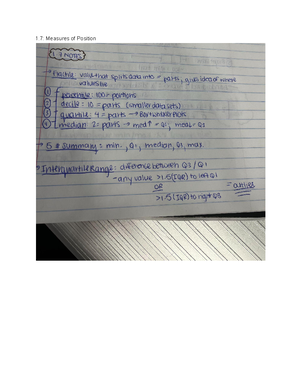 1.7: Measures of Position
1.7 Notes
Fractile: value that splits data into = parts, gives idea of where
value is
① percentile: 100 = portions
② decile: 10 = parts (smaller data sets)
③ quartile: 4 = parts →
④ median: 2 = parts →
→ 5 # Summary = min., Q1, median, Q3, max
Interquartile Range: difference between Q3 / Q1
- any value >1.5(IQR) to left Q1
OR
= outlier
>1.5(IQR) to right Q3